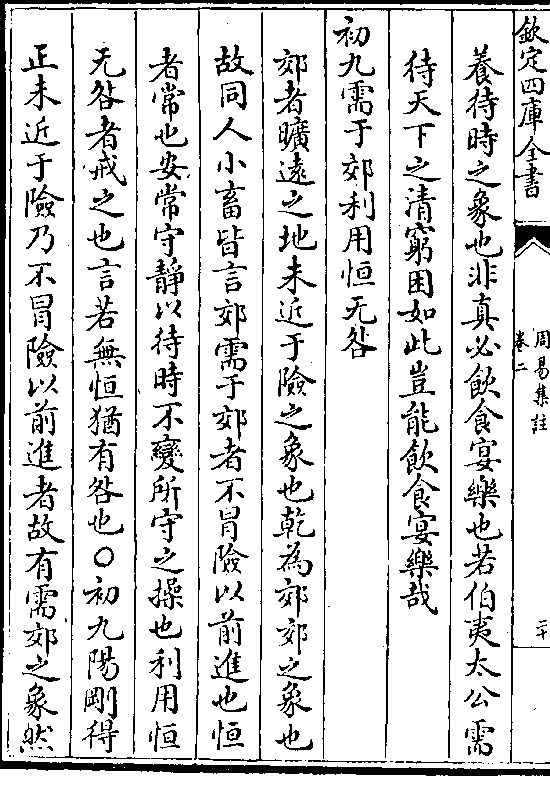 欽定四庫全書
周易集註
卷二
二十
養待時之象也非真必飲食宴樂也若伯夷太公需
待天下之清窮困如此豈能飲食宴樂哉
初九需于郊利用恒无咎
郊者曠遠之地未近于險之象也乾為郊郊之象也
故同人小畜皆言郊需于郊者不冒險以前進也恒
者常也安常守靜以待時不變所守之操也利用恒
无咎者戒之也言若無恒猶有咎也○初九陽剛得
正未近于險乃不冒險以前進者故有需郊之象然